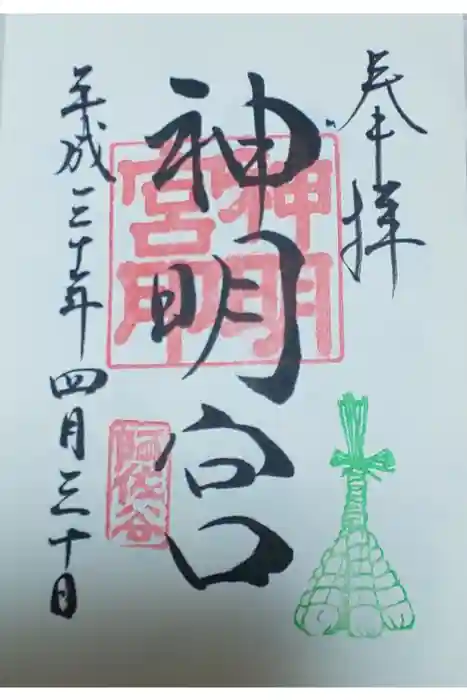 奉拝
神明宮
神明
宮印
阿佐谷
平成三十年四月三十日